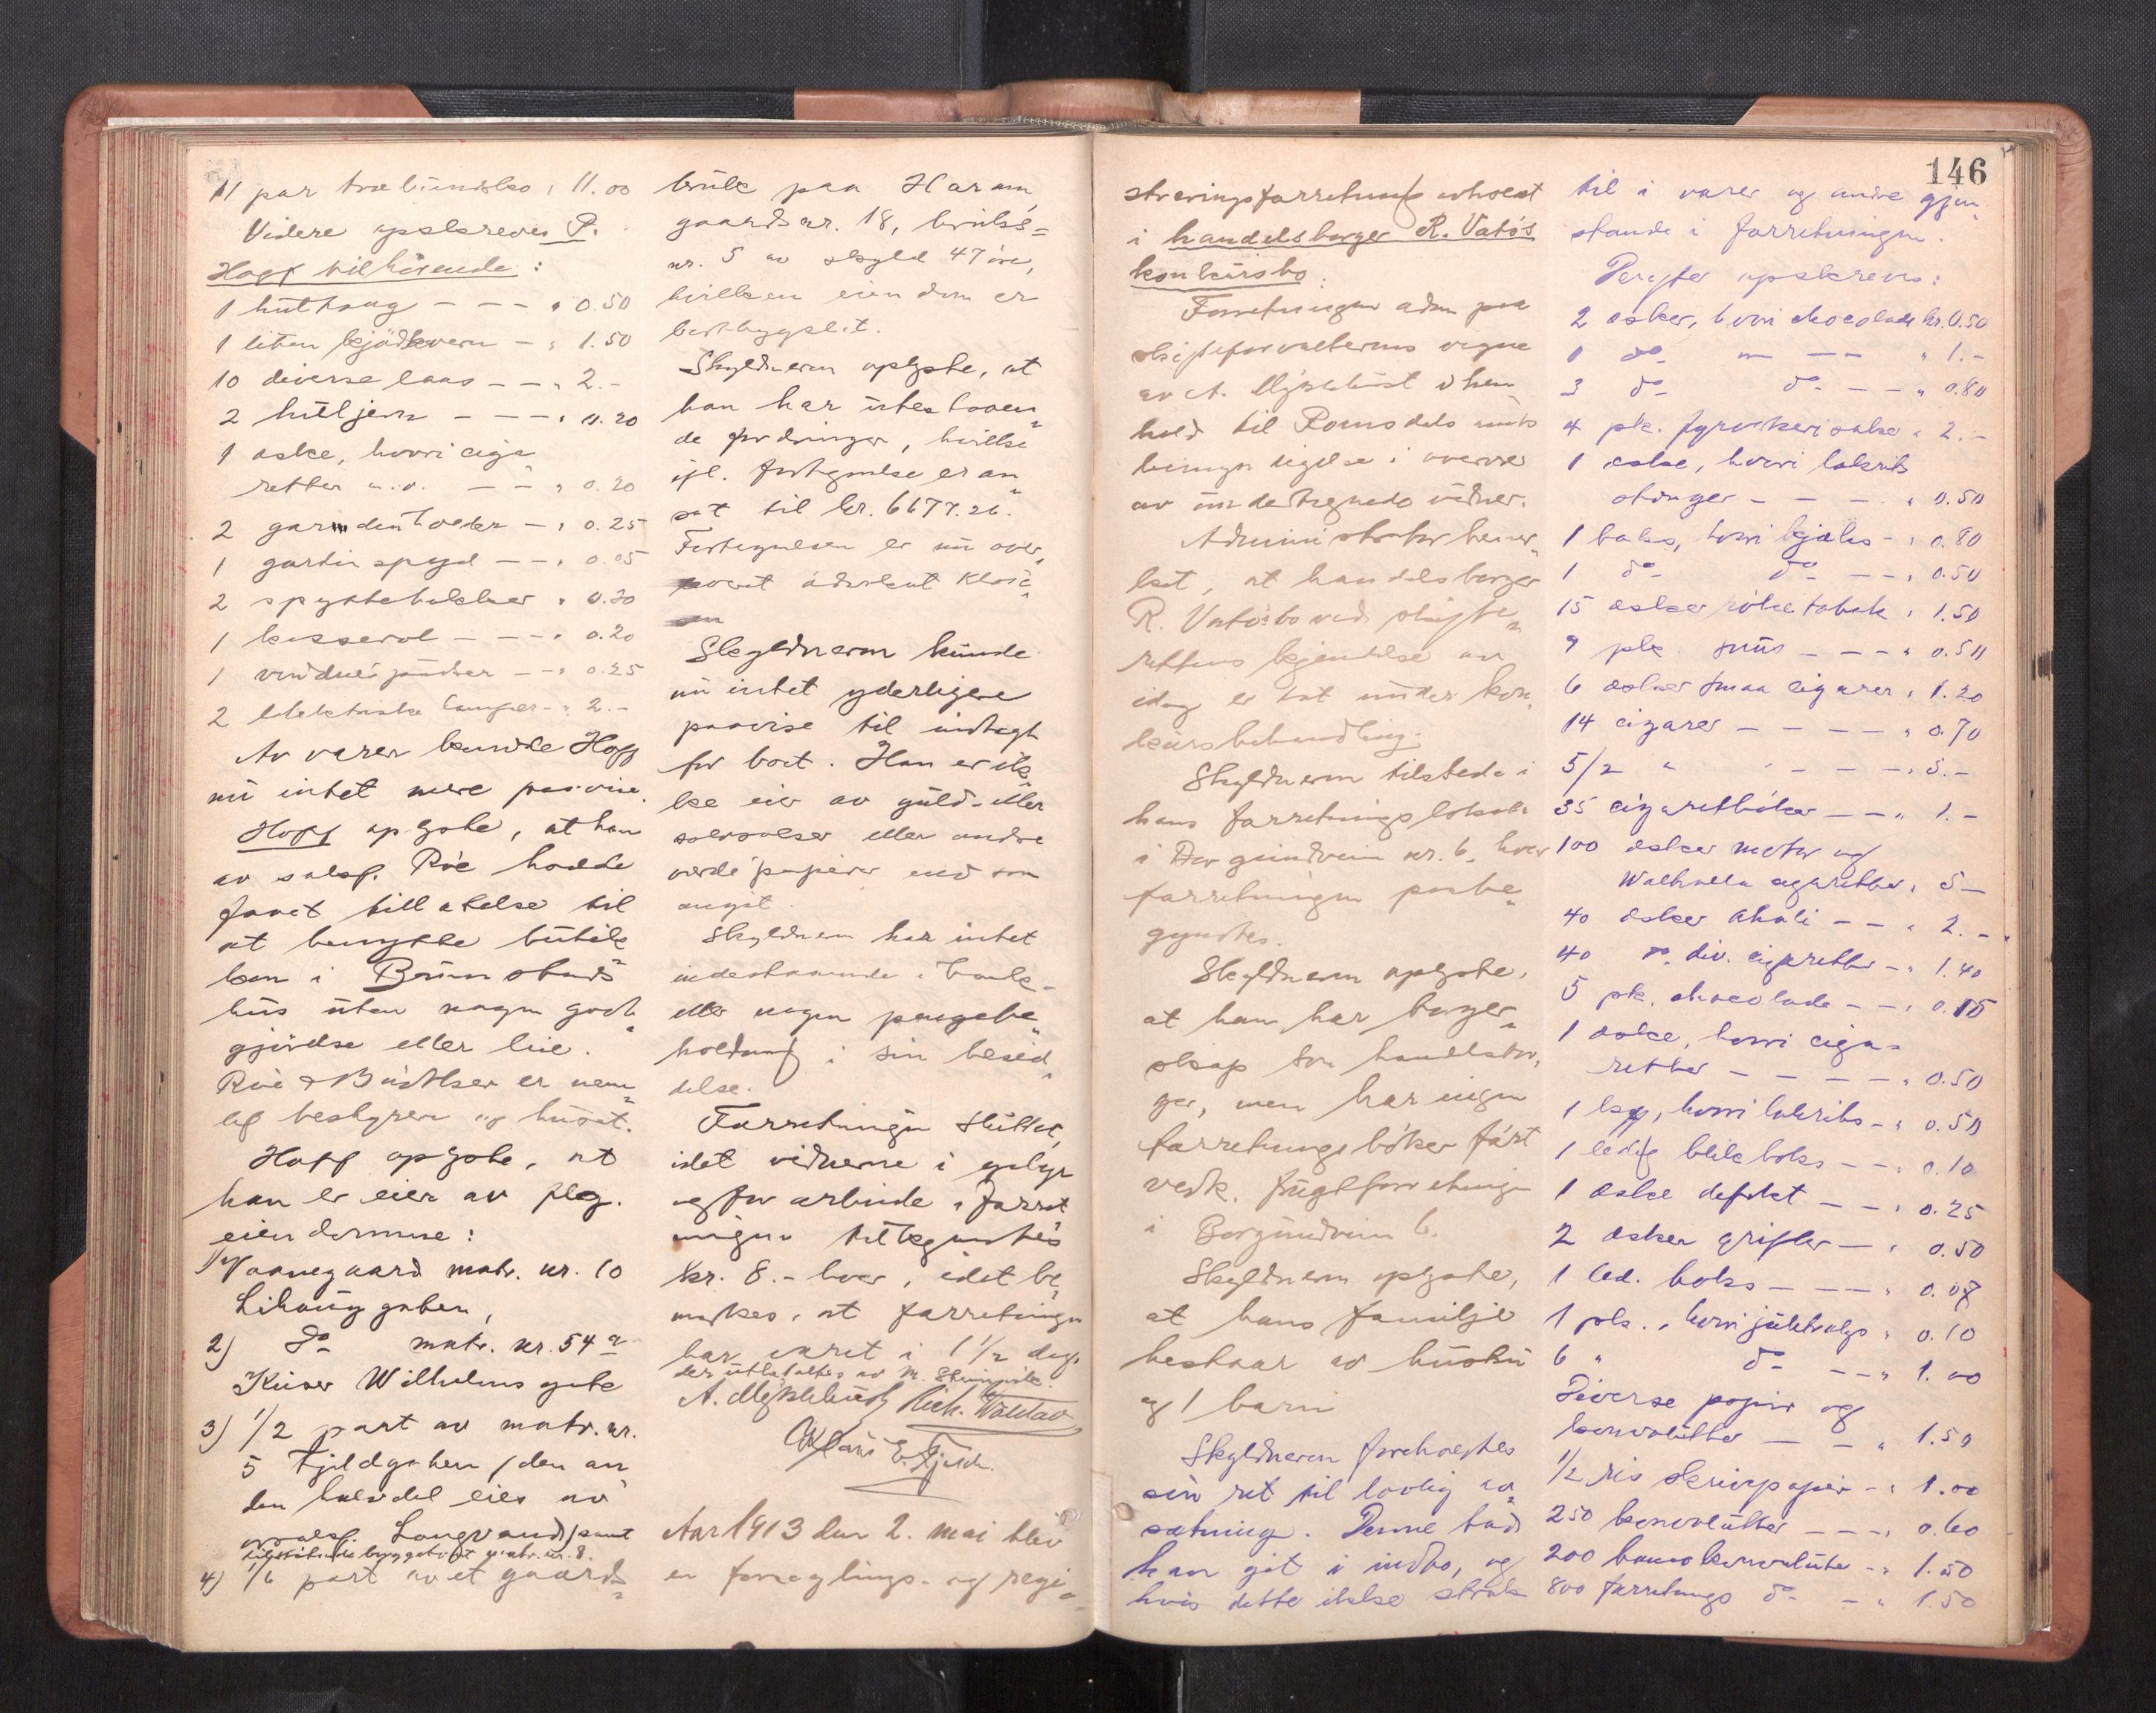 11 par træbundsko " 11.00
Videre opskreves P.
Hoff tilhörende:
1 huttang — — — " 0.50
1 liten kjödkvern — " 1.50
10 diverse laas — — " 2.-
2 hüljern — — — " 0.20
1 æske, hvori ciga
retter m.v. — — " 0.20
2 — " 0.25
1 gardinspyd — — " 0.05
2 spyttebakker " 0.20
1 kasserol — — — " 0.20
1 vinduspudser — — " 0.25
2 elektriske lamper — " 2.-
Av varer kunde Hoff
nu intet mere paavise.
Hoff oplyste, at han
av salsf. Röe hadde
faaet tillatelse til
at benytte butik„
ken i Brunstads
hus uten nogen godt„
gjörelse eller leie.
Röe & er nem„
lig bestyrere av huset.
Hoff oplyste, at
han er eier av flg.
eiendomme:
1) matr. nr. 10
Lihauggaten,
2) do matr. nr. 54 a
Keiser Wilhelms gate
3) 1/2 part av matr. nr.
5 Fjeldgaten (den an
den halvdel eies av
Langvand) samt
tilstötende byggetomt matr. nr. 8.
4) 1/6 part av et gaards„
bruk paa Haram,
gaards nr. 18, bruks=
nr. 5 av skyld 47 öre,
hvilken eiendom er
bortbygslet.
Skyldneren oplyste, at
han har utestaaen„
de fordringer, hvilke
ifl. fortegnelse er an„
sat til kr. 6677.26.
Fortegnelsen er nu over„
advokat
Skyldneren kunde
nu intet yderligere
paavise til indtægt
for boet. Han er ik„
ke eier av guld- eller
sölvsaker eller andre
værdipapirer end som
angit.
Skyldneren har intet
indestaaende i bank-
eller nogen pengebe„
holdning i sin besid„
delse.
Forretningen sluttet,
idet vidnerne i gebyr
og for arbeide i forret
ningen tilkjendtes
kr. 8.- hver, idet be„
merkes, at forretningen
har varet i 1 1/2 dag,
der utbetaltes av M.
A. Myklebust Rich. Waldau
E. Fjelde.
Aar 1913 den 2. mai blev
en forseglings- og regi-
146
streringsforretning avholdt
i handelsborger R. Vatös
konkursbo.
Forretningen adm paa
skifteforvalterens vegne
av A. Myklebust i hen
hold til Romsdals amts
bemyndigelse i overvær
av undertegnede vidner.
Administrator bemer„
ket, at handelsborger
R. Vatös bo ved skifte„
rettens kjendelse av
idag er tat under kon„
kursbehandling.
Skyldneren tilstede i
hans forretningslokale
i Borgundveien nr. 6, hvor
forretningen paabe„
gyndtes.
Skyldneren oplyste,
at han har borger„
skap som handelsbor„
ger, men har ingen
forretningsböker fört
vedk. frugtforretningen
i Borgundveien 6.
Skyldneren oplyste,
at hans familje
bestaar av hustru
og 1 barn
Skyldneren foreholdtes
sin ret til lovlig av„
sætning. Denne bad
han git i indbo, og
hvis dette ikke strak
til i varer og andre gjen„
stande i forretningen.
Derefter opskreves:
2 æsker, hvori chocolade kr. 0.50
1 do — — — " 1.-
3 do do — — " 0.80
4 pk. fyrstikker " 2.-
1 æske, hvori lakrits
stænger — — — " 0.50
1 boks, hvori kjæks — " 0.80
1 do do — — " 0.50
15 æsker röketobak " 1.50
9 pk. snus — — — " 0.50
6 æsker smaa cigarer " 1.20
14 cigarer — — — — " 0.70
5/2 " " — — — " 5.-
35 cigaretböker — — " 1.-
100 æsker motor og
Walhalla cigaretter " 5-
40 æsker — — " 2.-
40 do div. cigaretter — " 1.40
5 pk. chocolade — — " 0.15
1 æske, hvori ciga=
retter — — — — " 0.50
1 , hvori lakrits — " 0.50
1 ledig blikboks — — " 0.10
1 æske defekt — — " 0.25
2 æsker grifler — " 0.50
1 led. boks — — — " 0.07
1 pk., hvori juletalg " 0.10
6 " do — — " 1.00
Diverse papir og
konvolutter — — " 1.50
1/2 ris skrivpapir — " 1.00
250 konvolutter — — — " 0.60
200 konvolutter — " 1.50
800 forretnings do — " 1.50